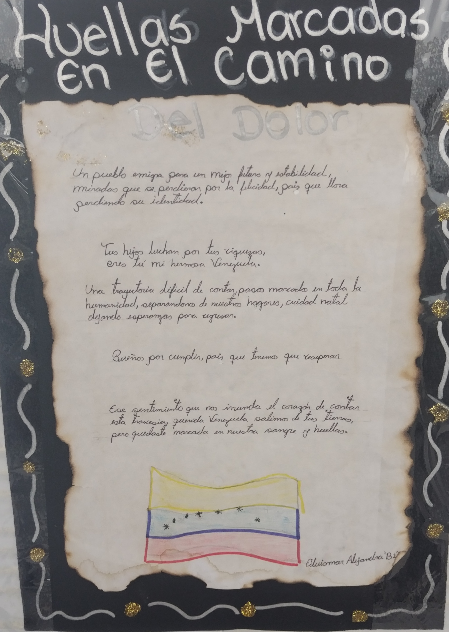 Huellas Marcadas
En El Camino
Del Dolor
Un pueblo emigra para un mejor futuro y estabilidad,
miradas que se perdieron por la felicidad, país que llora
perdiendo su identidad.
Tus hijos luchan por tus riquezas,
eres tú mi hermosa Venezuela.
Una trayectoria difícil de contar, pasos marcados en toda la
humanidad, separandonos de nuestros hogares, cuidad natal
dejando esperanzas para regresar.
Sueños por cumplir, país que tenemos que recuperar
Ese sentimiento que nos inunda el corazón de contar
esta travesía, querida Venezuela salimos de tus tierras,
pero quedaste marcada en nuestra sangre y huellas.
Alejandra